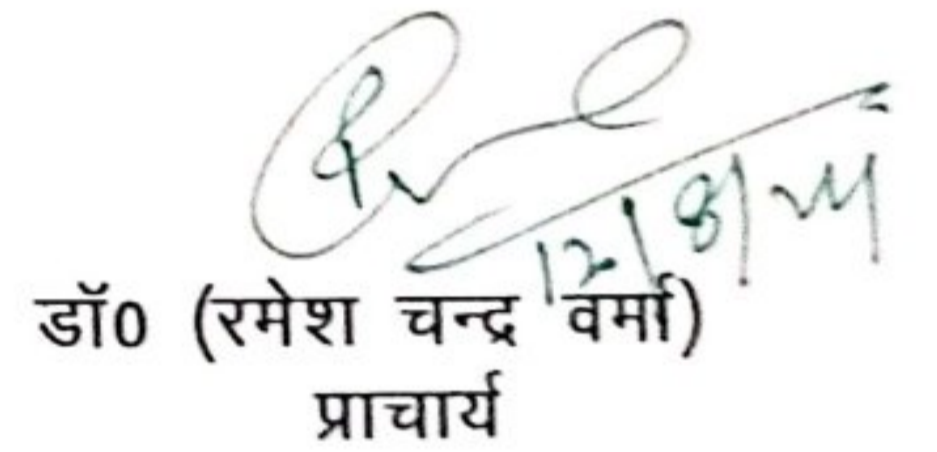 12/8/24
डॉ0 (रमेश चन्द्र वर्मा)
प्राचार्य